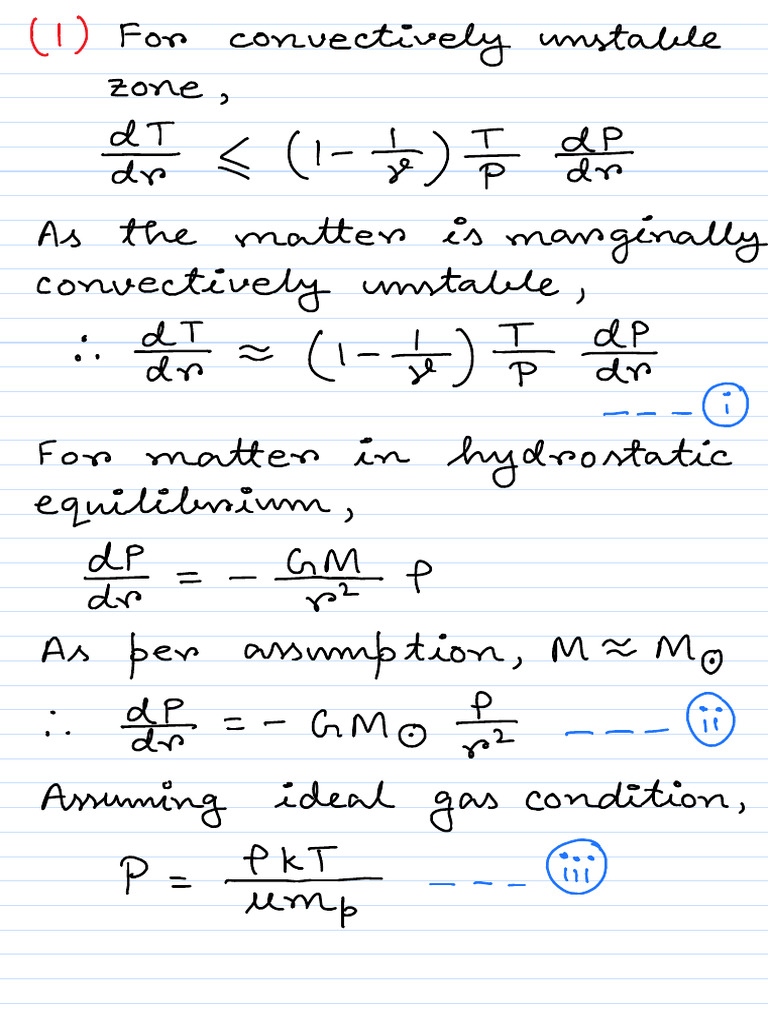 (1) For convectively unstable
zone,
dT/dr ≤ (1 - 1/γ) T/P dP/dr
As the matter is marginally
convectively unstable,
∴ dT/dr ≈ (1 - 1/γ) T/P dP/dr
--- (i)
For matter in hydrostatic
equilibrium,
dP/dr = - GM/r² ρ
As per assumption, M ≈ M☉
∴ dP/dr = - GM☉ ρ/r² --- (ii)
Assuming ideal gas condition,
P = ρkT/μmp --- (iii)